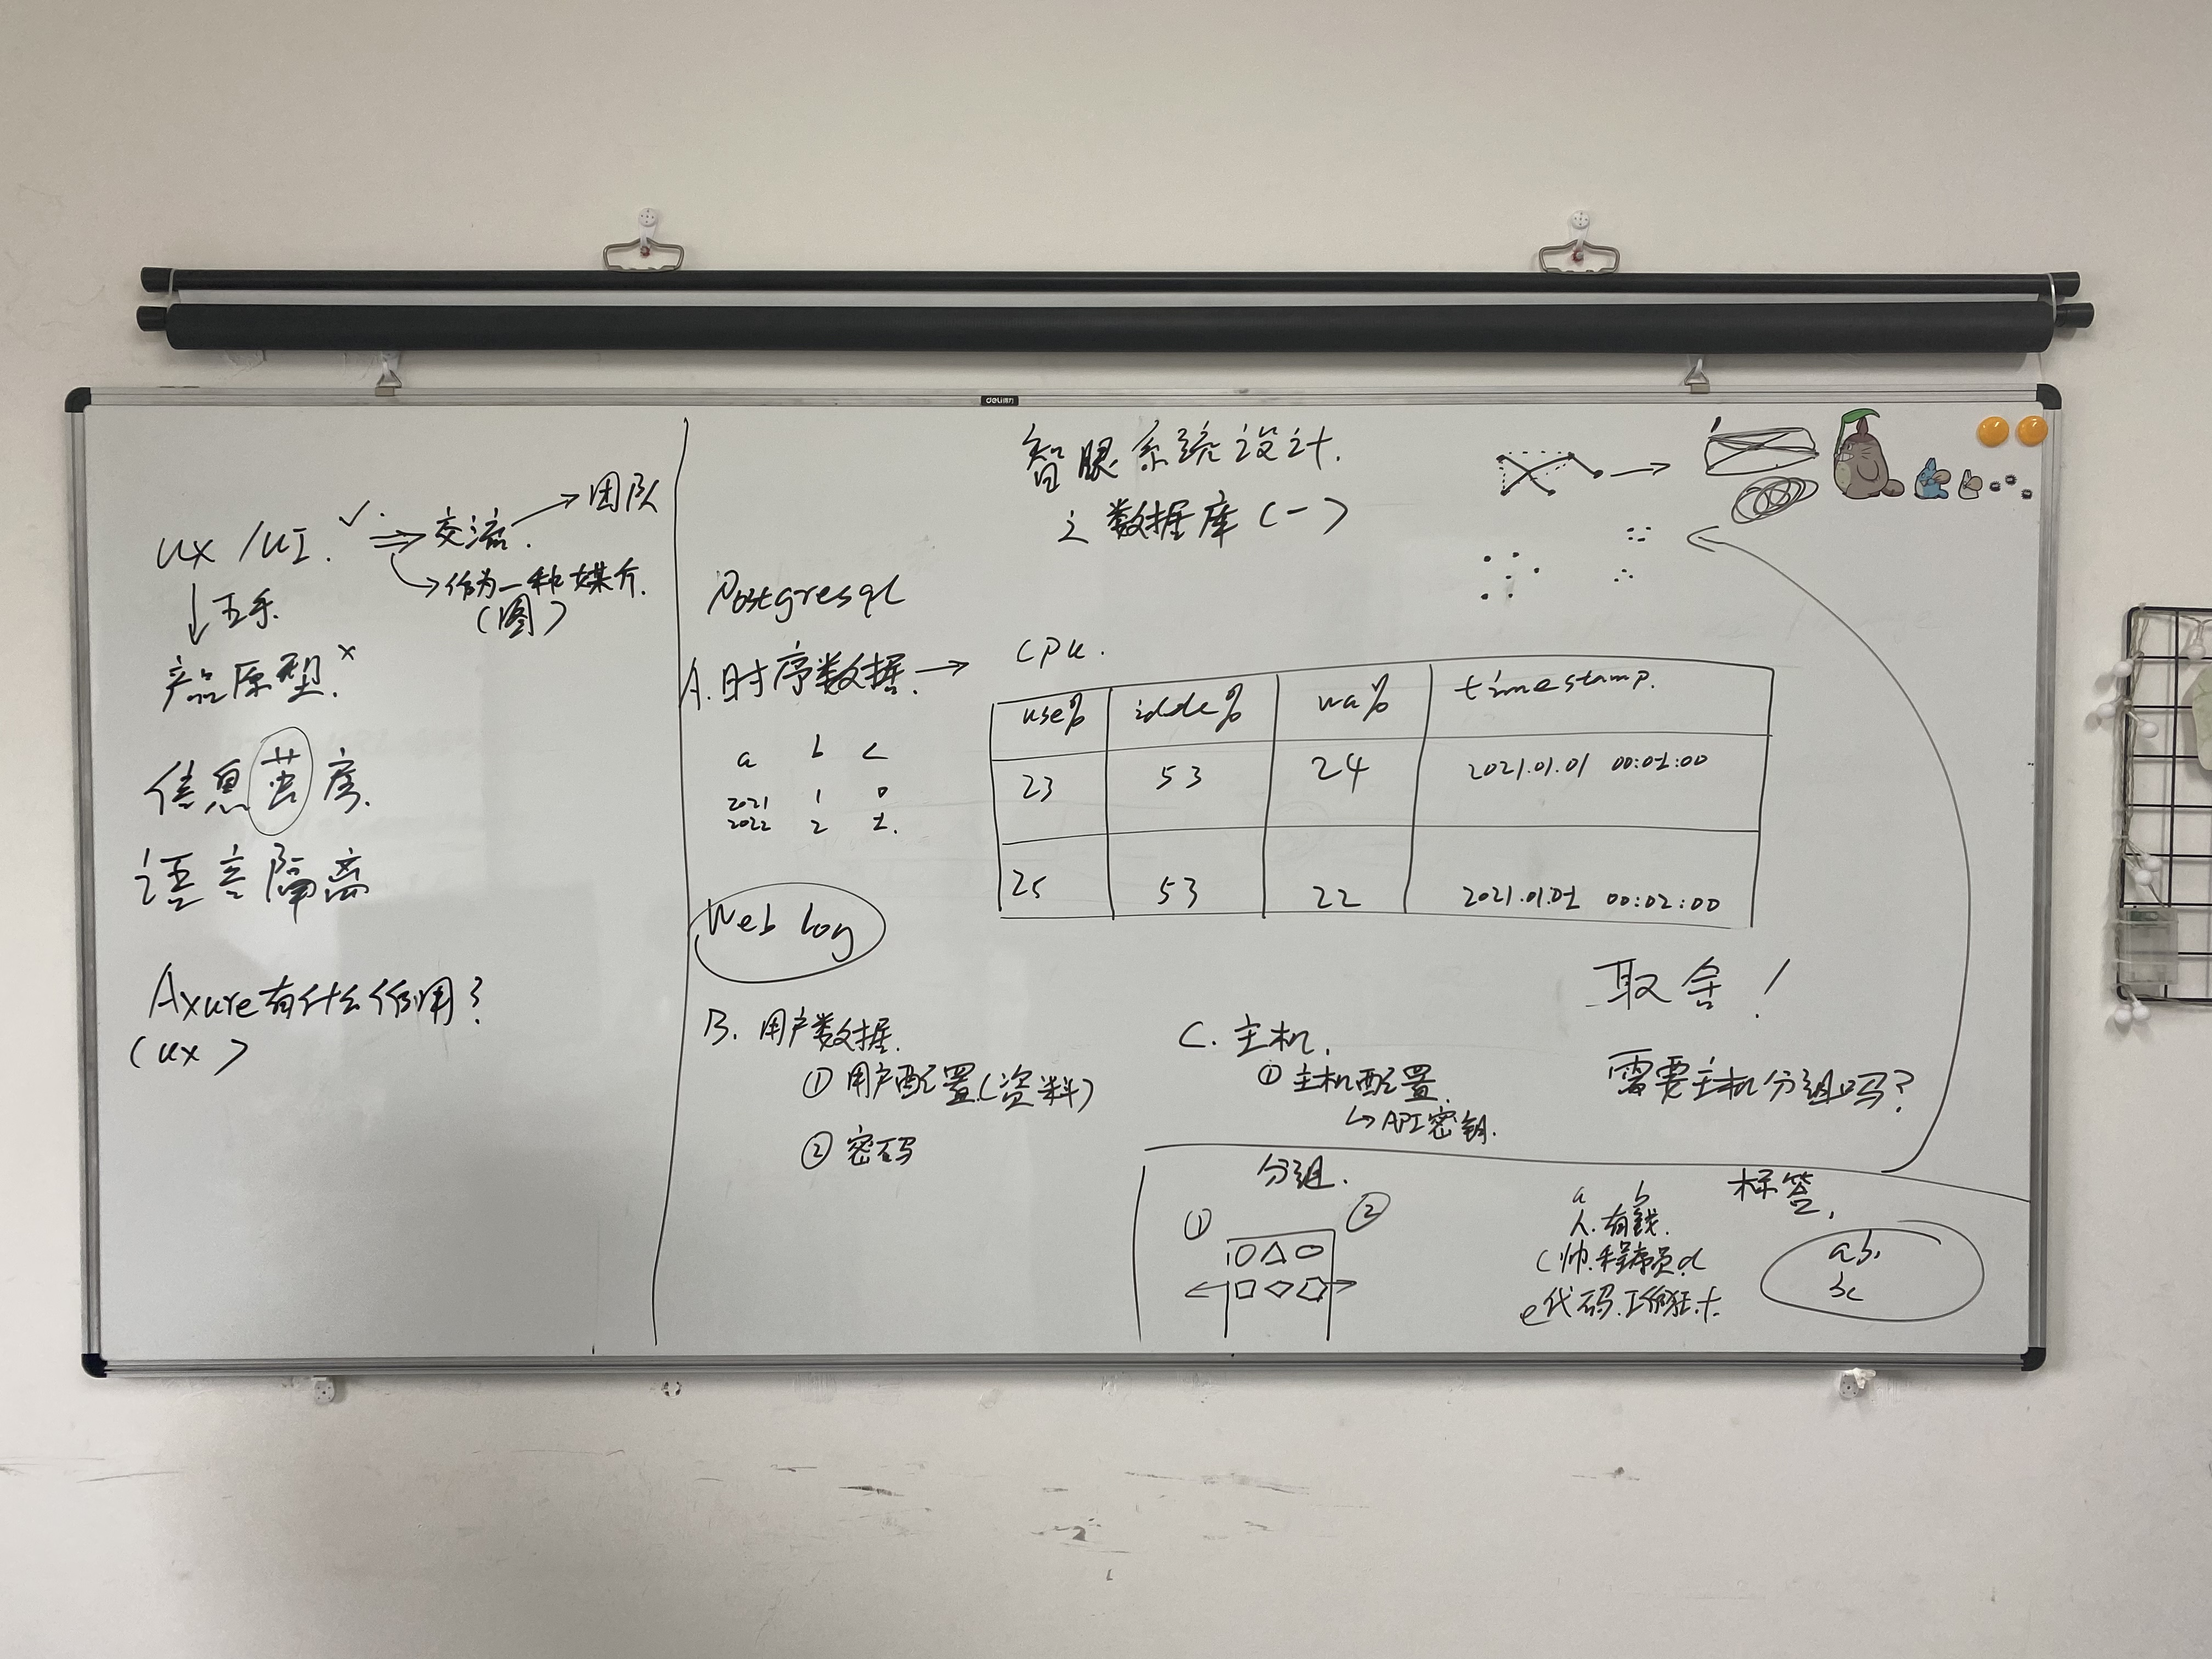 UX/UI. ✓. ⇒ 交流. → 团队
→ 作为一种媒介.
(图)
↓
产品原型. ×
信息茧房.
语言隔离
Axure有什么作用?
(UX)
智眼系统设计.
之数据库(一)
Postgresql
A. 时序数据. →
a b c
2021 1 0
2022 2 1.
Web log
CPU.
use% idde% wa% timestamp.
23 53 24 2021.01.01 00:01:00
25 53 22 2021.01.01 00:02:00
B. 用户数据.
① 用户配置(资料)
② 密码
C. 主机.
① 主机配置.
↳ API密钥.
取舍!
需要主机分组吗?
分组.
① ②
标签.
a b
人.有钱.
c 帅.程序员.d
e 代码.工作狂.f.
ab.
bc
deli得力